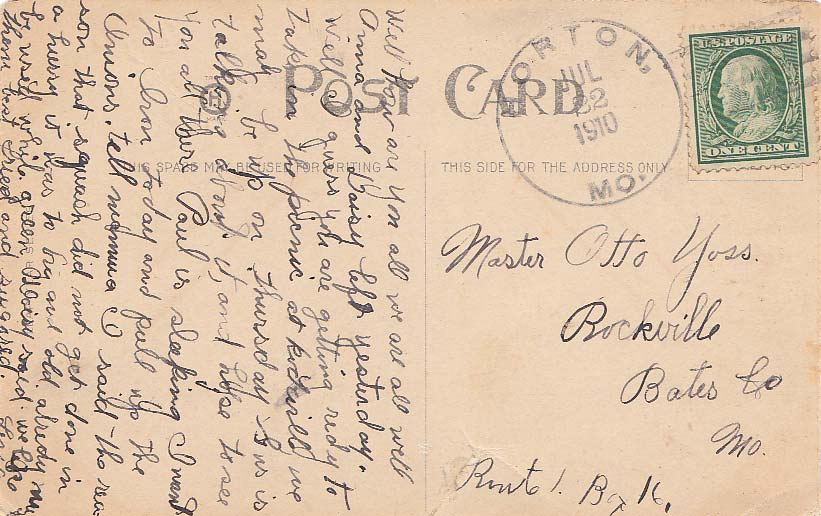 POST CARD
THIS SPACE MAY BE USED FOR WRITING
THIS SIDE FOR THE ADDRESS ONLY
U.S. POSTAGE
ONE CENT
NORTON,
JUL
22
1910
MO.
Master Otto Yoss.
Rockville
Bates Co
Mo.
Route 1. Box 16,
Well How are you all we are all well
Anna and Daisy left yesterday.
Well I guess you are getting redy to
take in the picnic at Rockvill we
may be up on Thursday Lewis is
talking about it, and hope to see
you all there Paul is sleeping I want
to Iron today and pull up the
Onions. tell mamma I said the rea
son that squash did not get done in
a hurry it was to big and old already
by well while green Daisy said we like
them best fried and sugared.